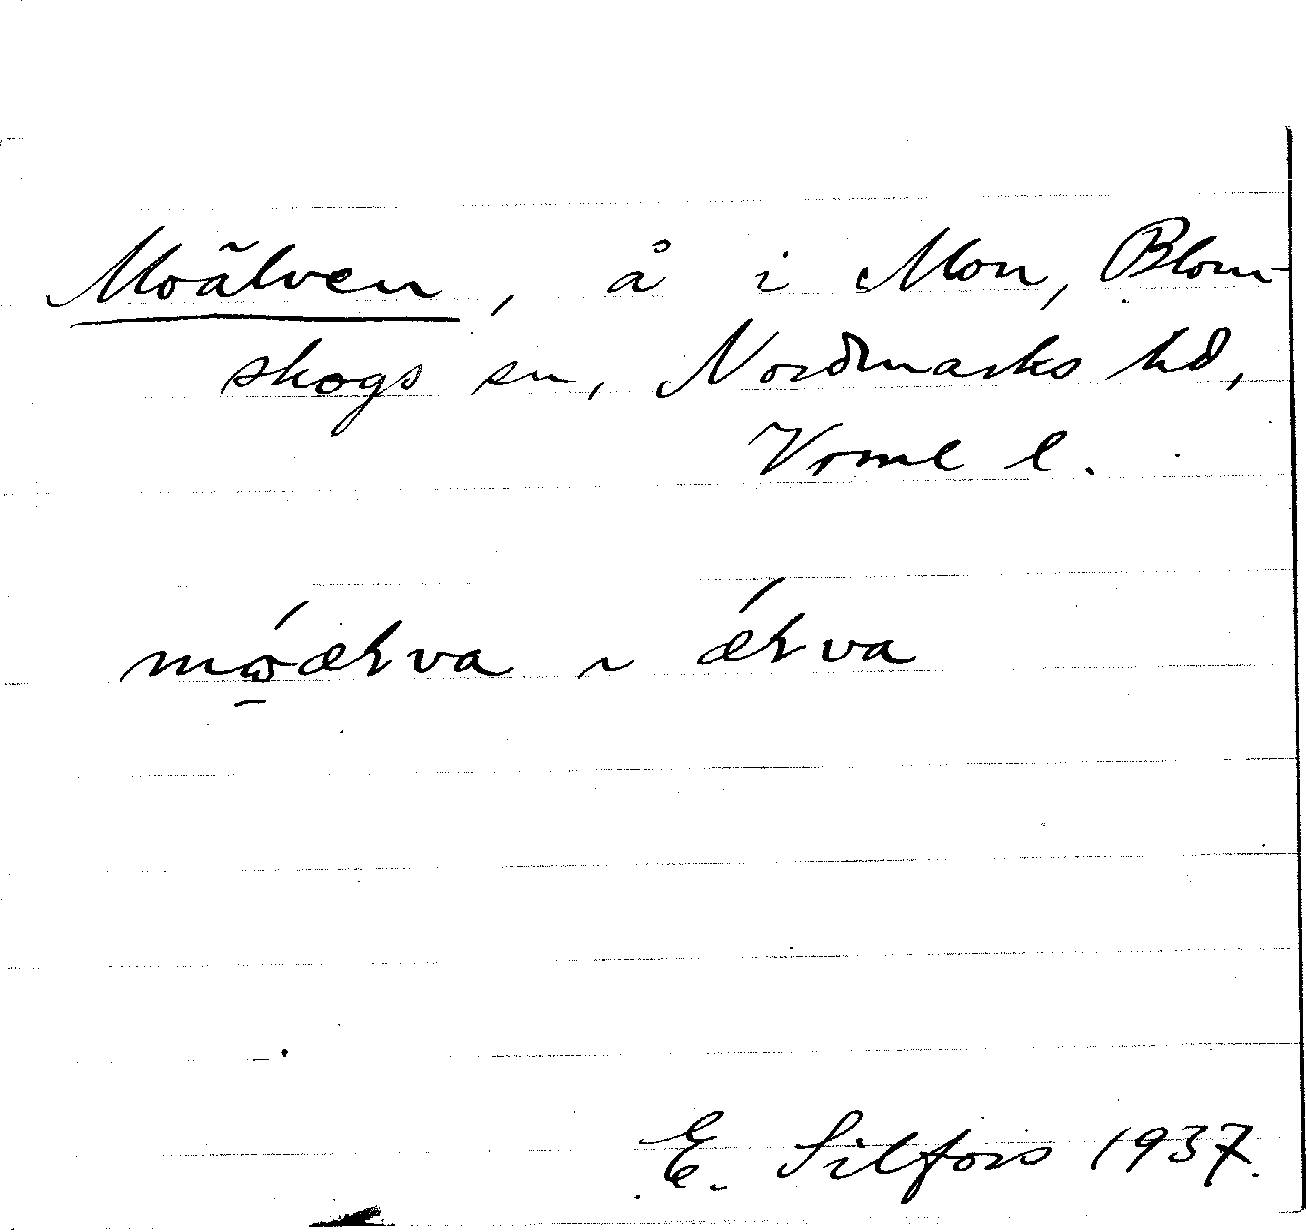 Moälven, å i Mon, Blom-
skogs sn, Nordmarks hd,
Vrml l.
mώ̱æɫva ~ ǽɫva
E. Silfors 1937.